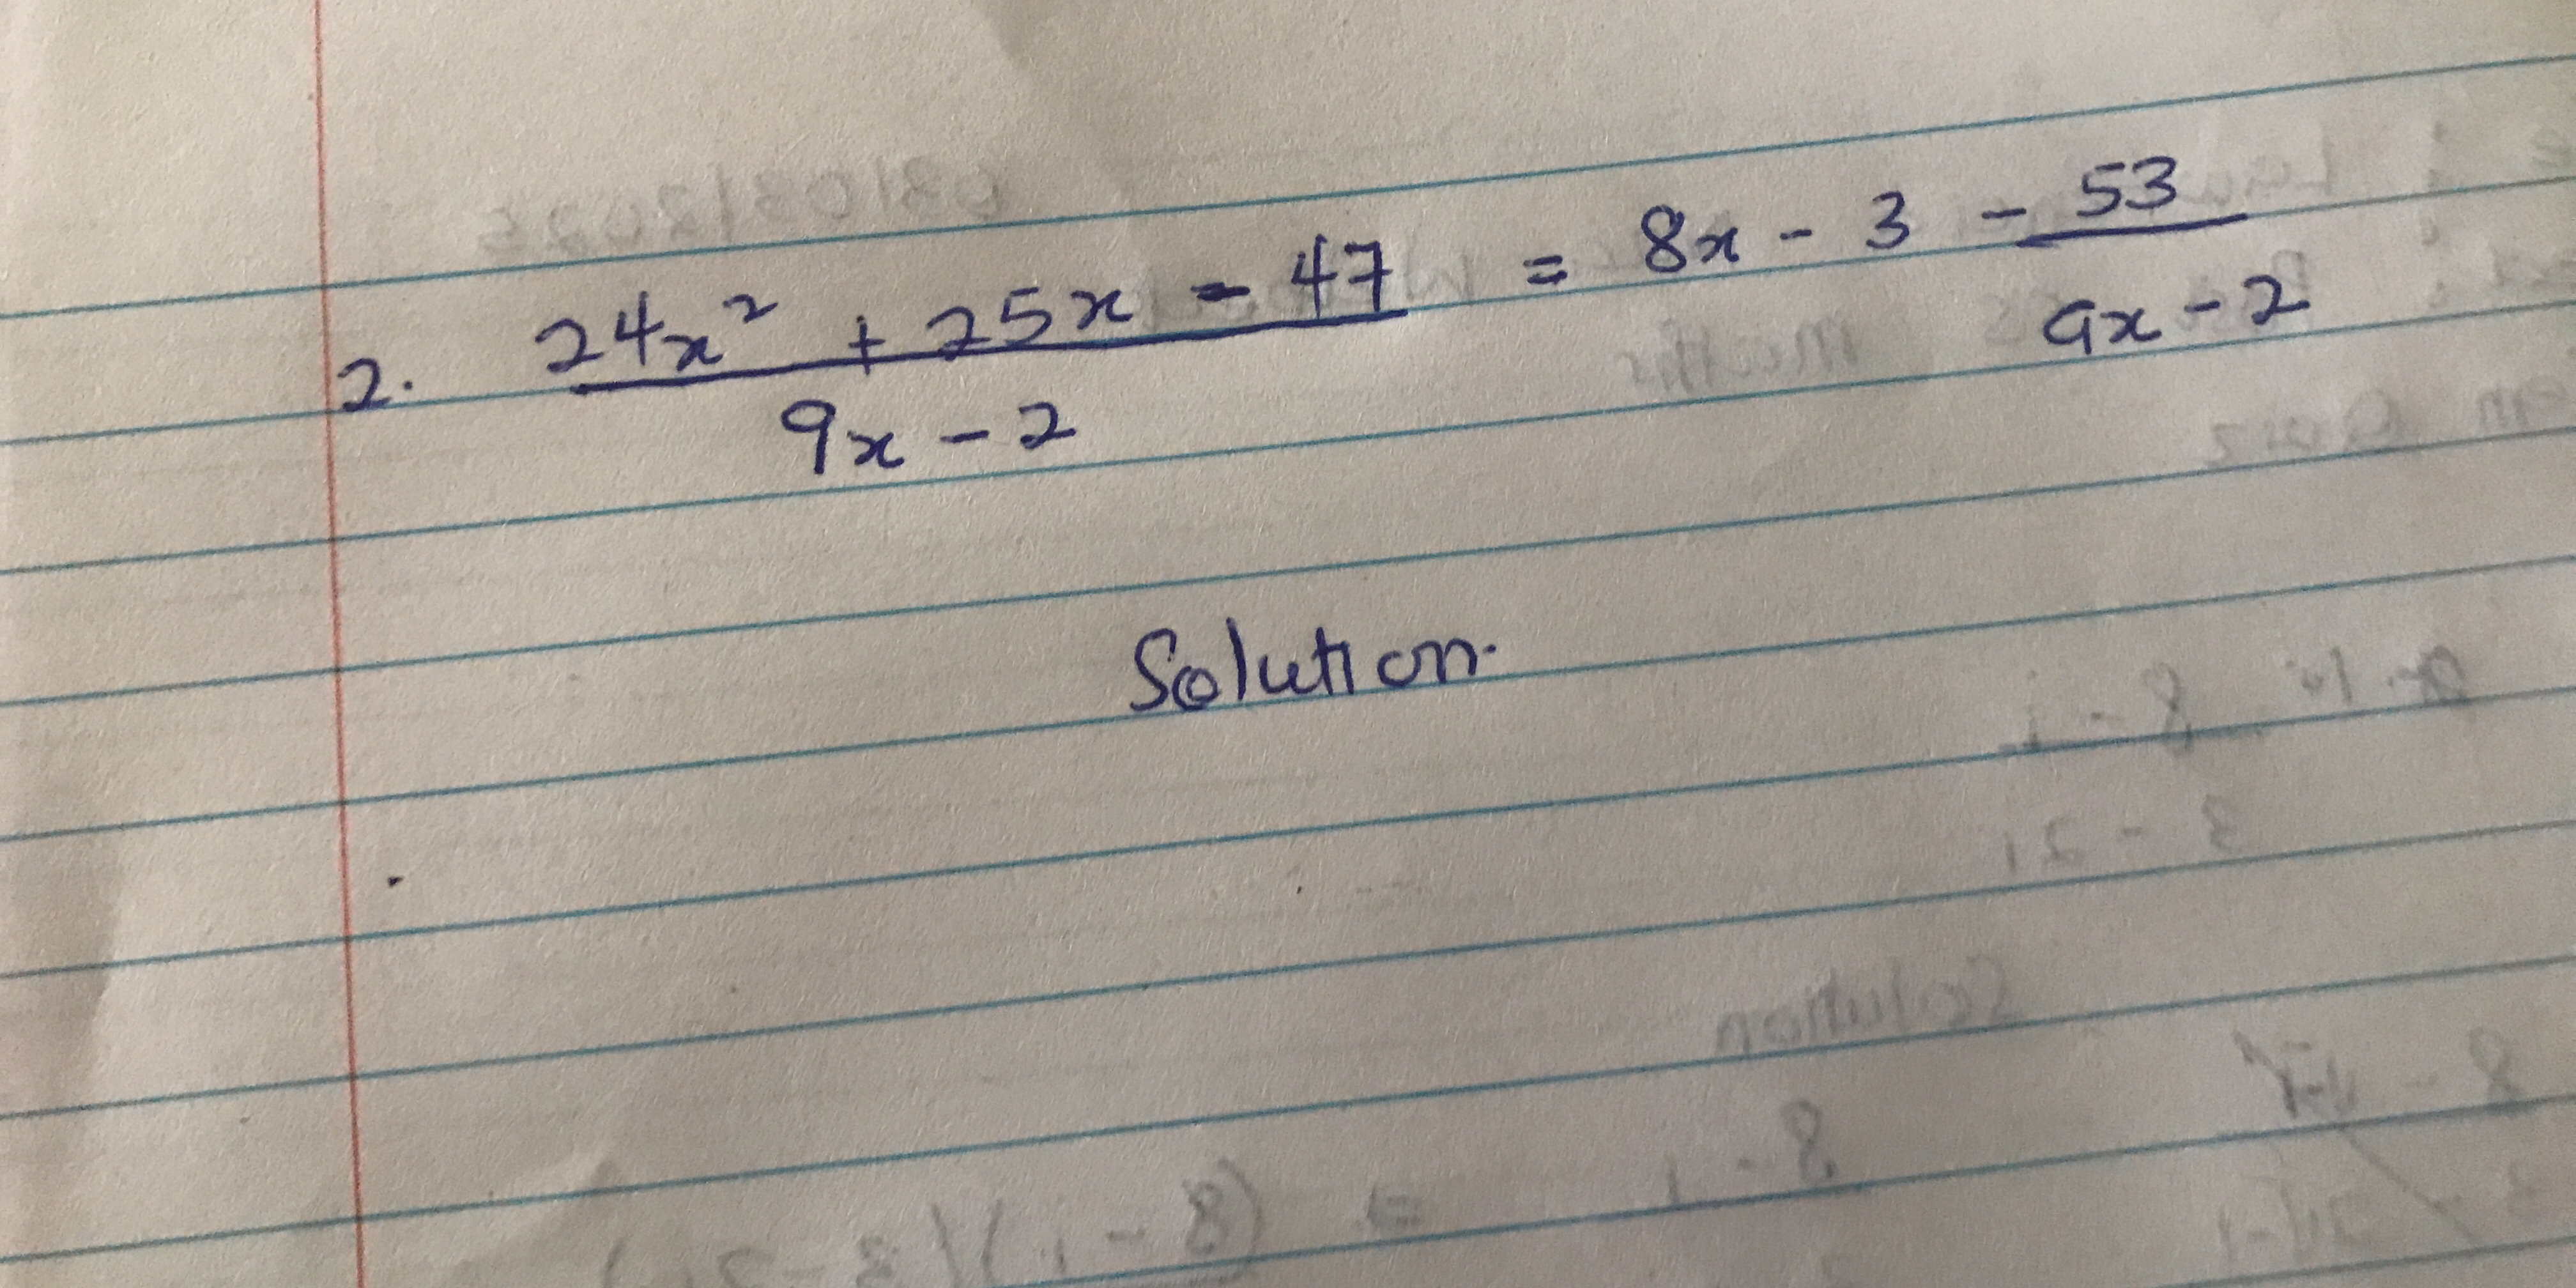 2. 24x² + 25x - 47 / 9x - 2 = 8x - 3 - 53 / 9x - 2
Solution.